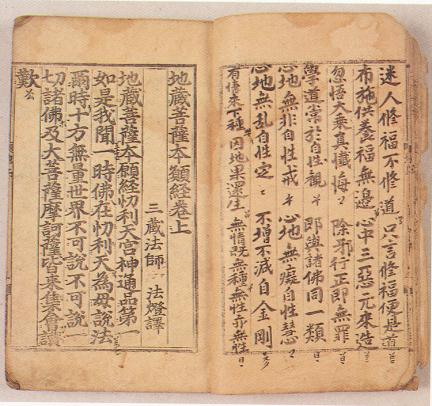 迷人修福不修道 只言修福便是道
布施供養福無邊 心中三惡元來造
忽悟大乘真懺悔 除邪行正即無罪
學道常於自性觀 即與諸佛同一類
心地無非自性戒 心地無癡自性慧
心地無乱自性定 不增不減自金剛
有情來下種 因地果還生 無情既無種 無性亦無
地藏菩薩本願經卷上
三藏法師 法燈譯
地藏菩薩本願經忉利天宮神通品第一
如是我聞一時佛在忉利天為母說法
爾時十方無量世界不可說不可說一
切諸佛及大菩薩摩訶薩皆來集會讚
歎